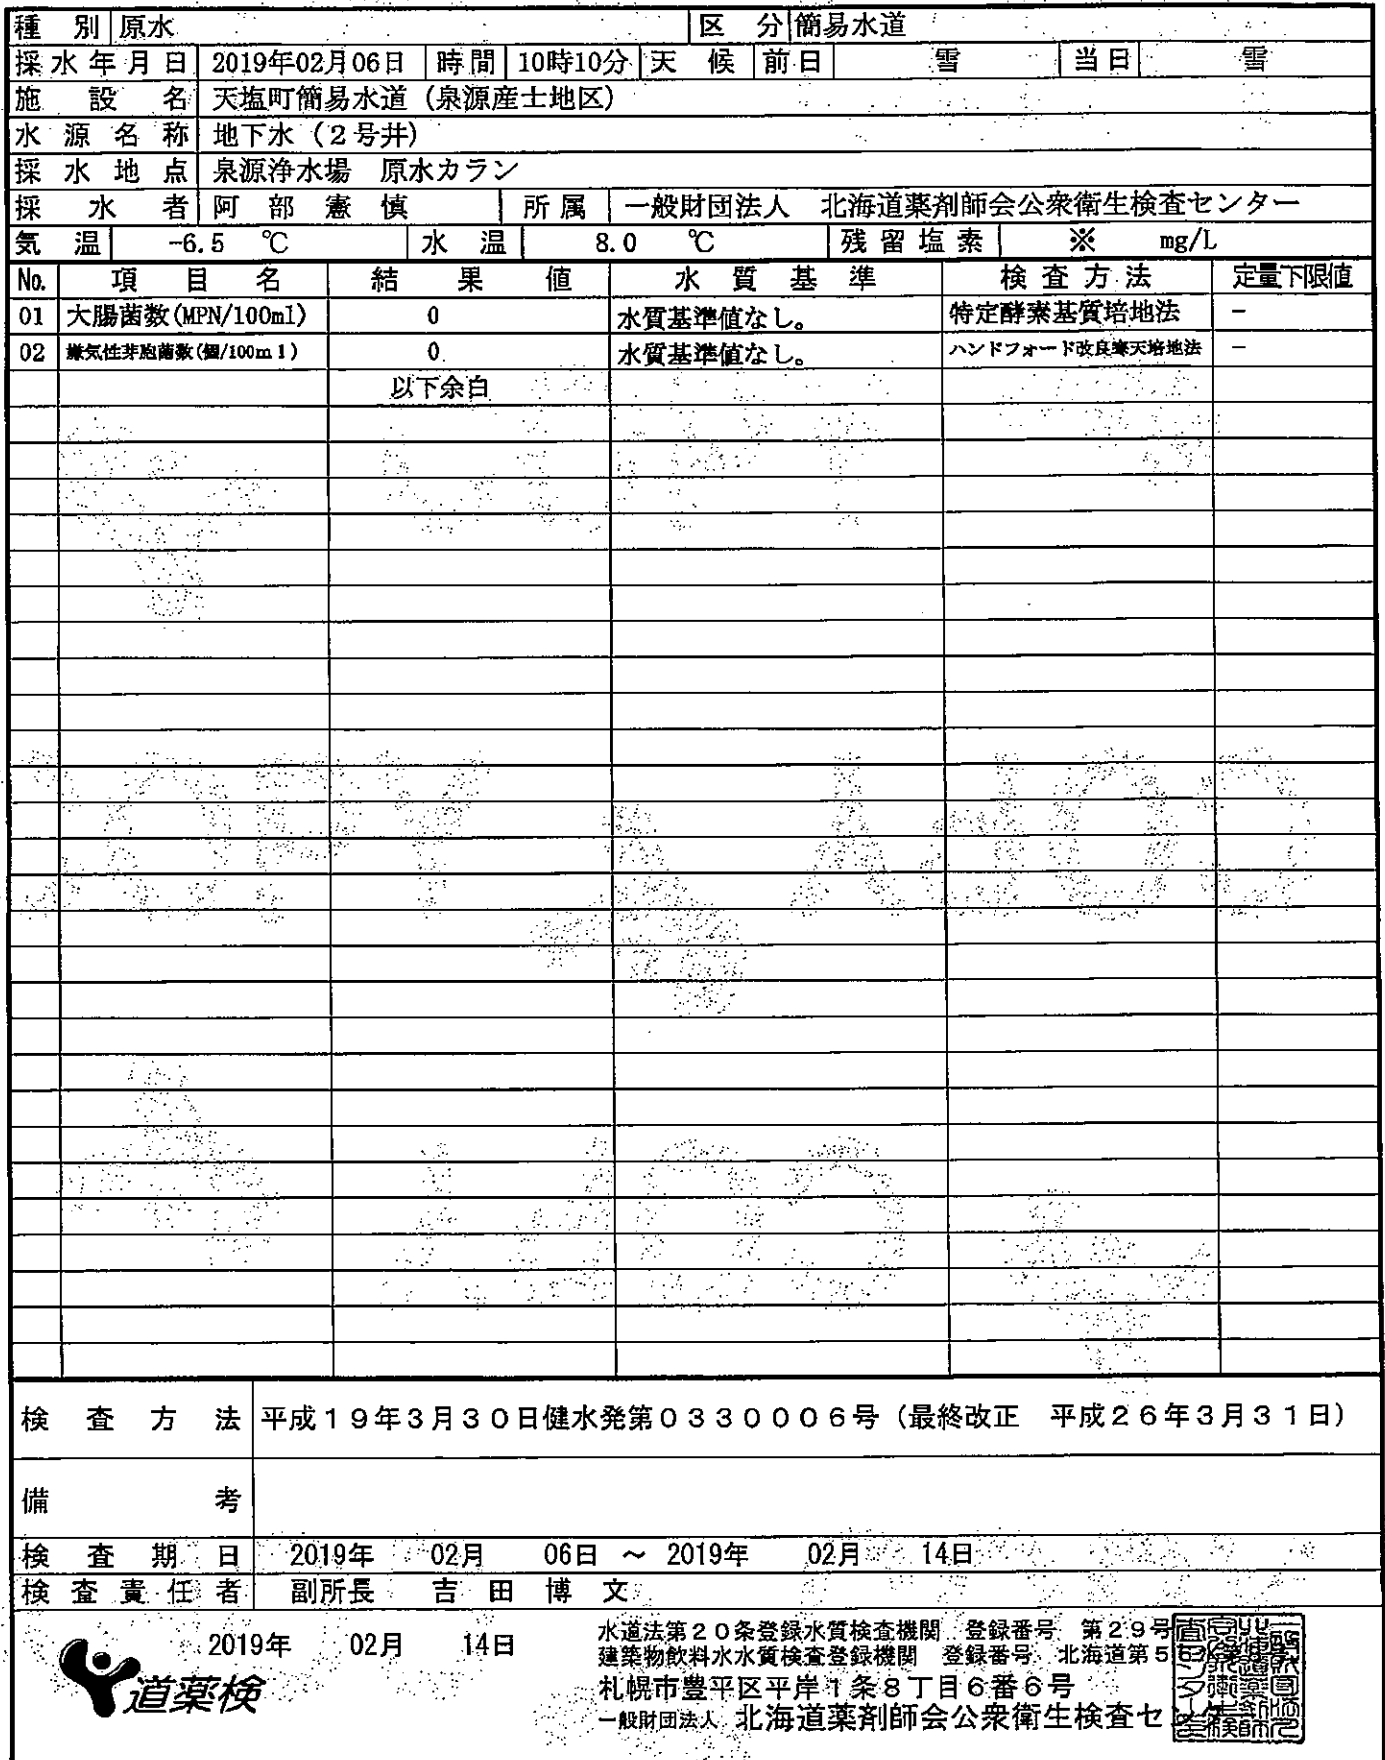 種 別 原水 区 分 簡易水道
採水年月日 2019年02月06日 時間 10時10分 天 候 前日 雪 当日 雪
施 設 名 天塩町簡易水道（泉源産士地区）
水 源 名 称 地下水（２号井）
採 水 地 点 泉源浄水場　原水カラン
採 水 者 阿 部 憲 慎 所属 一般財団法人　北海道薬剤師会公衆衛生検査センター
気 温 -6.5 ℃ 水 温 8.0 ℃ 残 留 塩 素 ※ mg/L
No. 項 目 名 結 果 値 水 質 基 準 検 査 方 法 定量下限値
01 大腸菌数(MPN/100ml) 0 水質基準値なし。 特定酵素基質培地法 −
02 嫌気性芽胞菌数(個/100ml) 0 水質基準値なし。 ハンドフォード改良寒天培地法 −
以下余白
検 査 方 法 平成１９年３月３０日健水発第０３３０００６号（最終改正　平成２６年３月３１日）
備 考
検 査 期 日 2019年 02月 06日 ～ 2019年 02月 14日
検 査 責 任 者 副所長 吉 田 博 文
2019年 02月 14日
水道法第２０条登録水質検査機関　登録番号　第２９号
建築物飲料水水質検査登録機関　登録番号　北海道第５
札幌市豊平区平岸１条８丁目６番６号
一般財団法人 北海道薬剤師会公衆衛生検査セ
道薬検